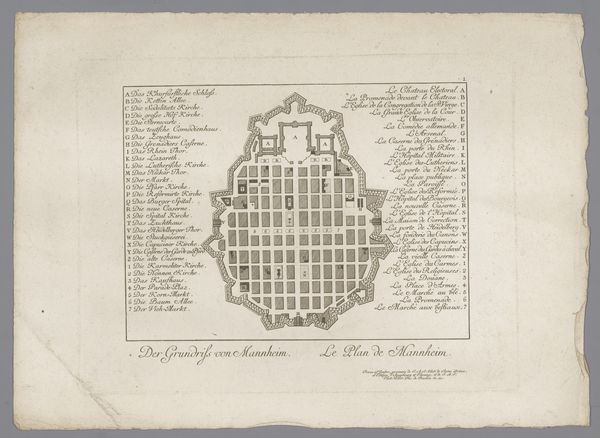 1
A Das Churfürstliche Schloss.
B Die Ketten Allee.
C Die Sodalitets Kirche.
D Die grosse Hoff Kirche.
E Die Sternwarte.
F Das teutsche Comœdienhaus
G Das Zeughaus
H Die Grenadiers Caserne.
I Das Rhein Thor.
K Das Lazareth.
L Die Lutherische Kirche.
M Das Neckar Thor.
N Der Marckt.
O Die Pfarr Kirche.
P Die Reformirte Kirche.
Q Das Burger Spital.
R Die neue Caserne.
S Die Spital Kirche.
T Das Zuchthaus.
V Das Heidelberger Thor.
W Die Stuckgieserey.
X Die Capuciner Kirche.
Y Die Caserne der Garde zu Pferd
Z Die alte Caserne.
1 Die Karmeliter Kirche.
2 Die Nonnen Kirche.
3 Das Kaufhaus.
4 Der Parade Plaz.
5 Der Korn-Markt.
6 Die Baum Allee.
7 Der Vieh-Markt.
Le Chateau Electoral. A
La Promenade devant le Chateau. B
L'Eglise de la Congregation de la Ste Vierge. C
La Grande Eglise de la Cour. D
L'Observatoire. E
La Comedie allemande. F
L'Arsenal. G
La Caserne des Grenadiers. H
La porte du Rhin. I
L'Hôpital Militaire. K
L'Eglise des Lutheriens. L
La porte du Neckar. M
La place publique. N
La Paroisse. O
L'Eglise des Reformés. P
L'Hôpital des Bourgeois. Q
La nouvelle Caserne. R
L'Eglise de l'Hôpital. S
La Maison de Correction. T
La porte de Heidelberg. V
La fonderie des Canons. W
L'Eglise des Capucins. X
La Caserne des Gardes à cheval. Y
La vieille Caserne. Z
L'Eglise des Carmes. 1
L'Eglise des Religieuses. 2
La Douane. 3
La Place d'Armes. 4
Le Marché au blé. 5
La Promenade. 6
Le Marché aux bestiaux. 7
Der Grundriss von Mannheim. Le Plan de Mannheim.